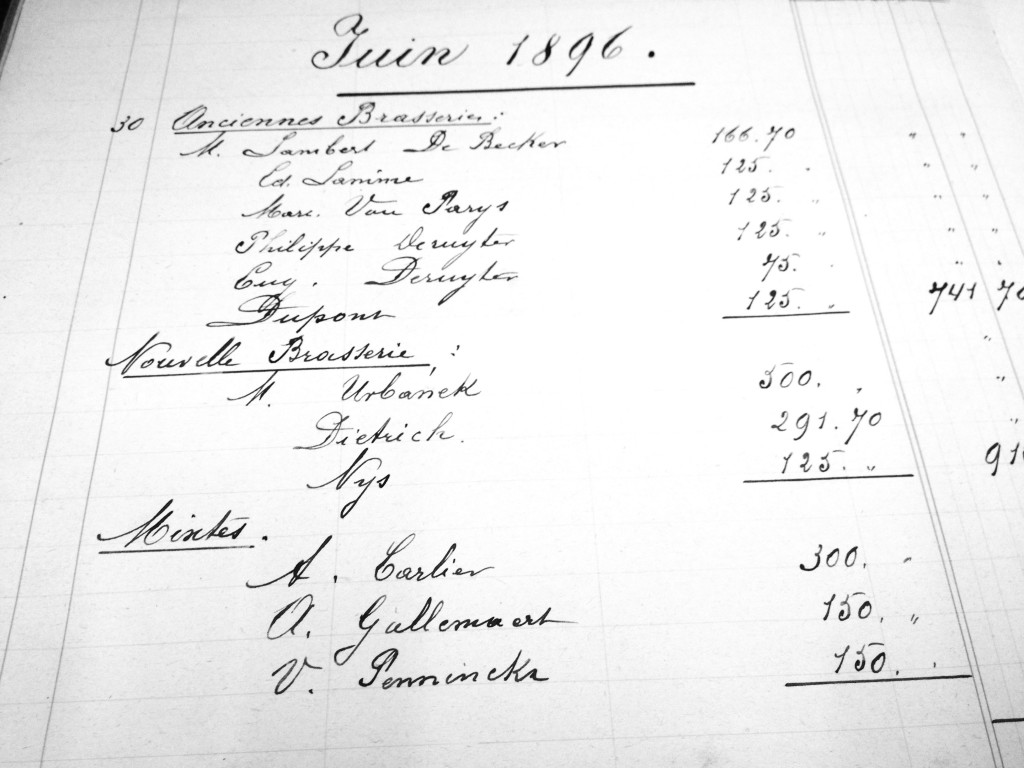 Juin 1896.
30 Anciennes Brasseries :
M. Lambert De Becker 166.70 " "
Ed. Lanime 125. " " "
Marc. Van Parys 125. " " "
Philippe Deruyter 125. " " "
Eug. Deruyter 75. " " "
Dupont 125. " 741 70
Nouvelle Brasserie : "
M. Urbanek 500. " "
Dietrich. 291.70 "
Nys 125. " 916
Mixtes.
A. Carlier 300. "
A. Gallemaert 150. "
V. Penninckx 150. "